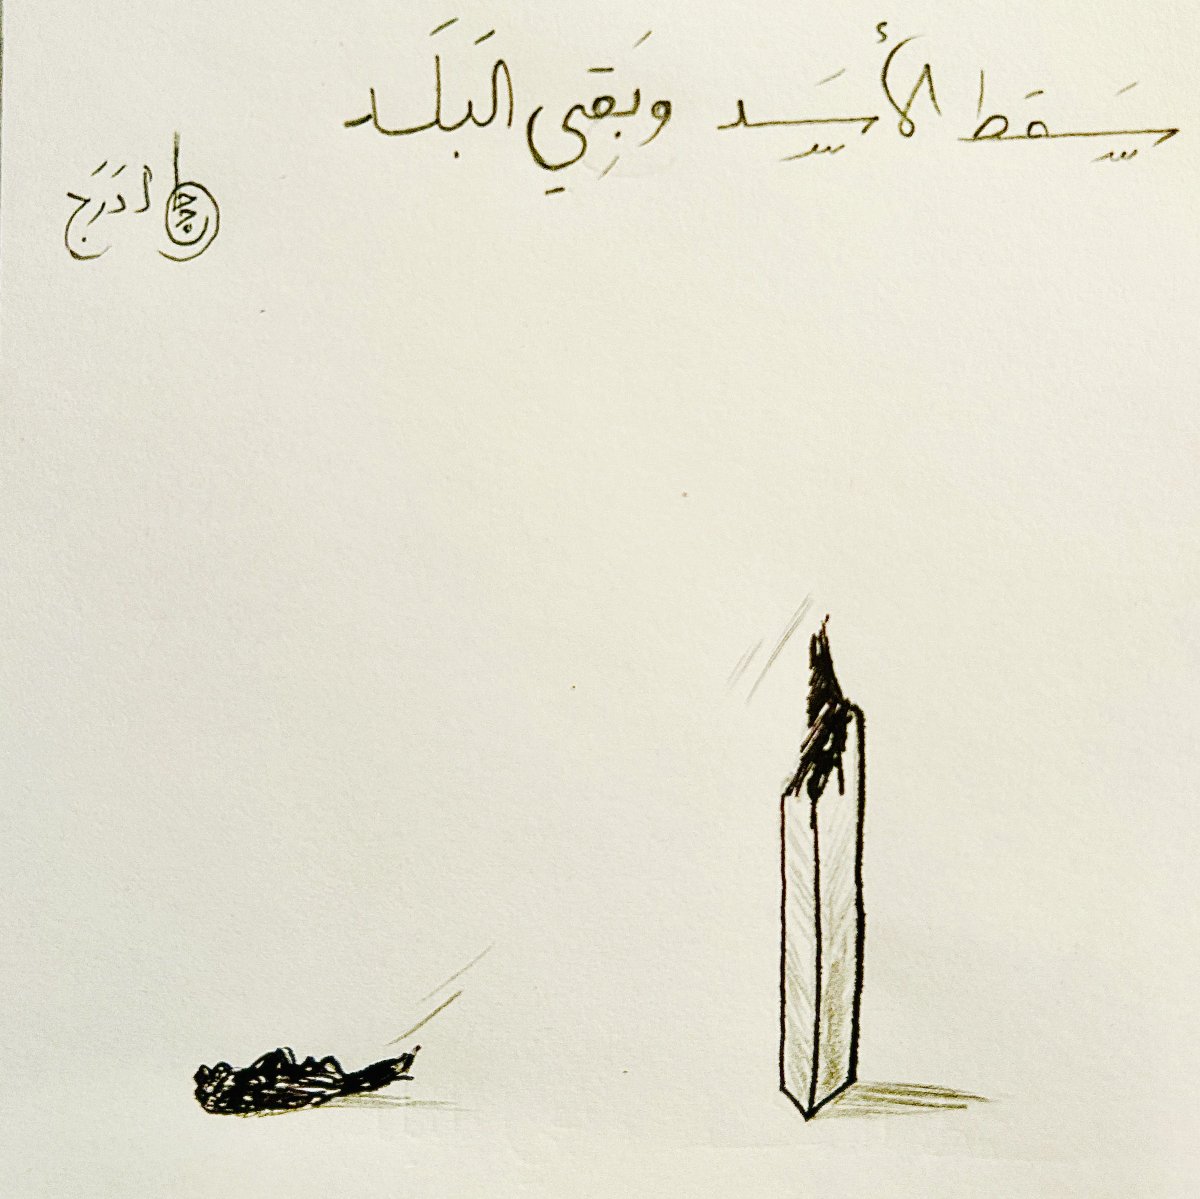 سَقَط الأسَد وبَقِي البَلَد
دَرَج